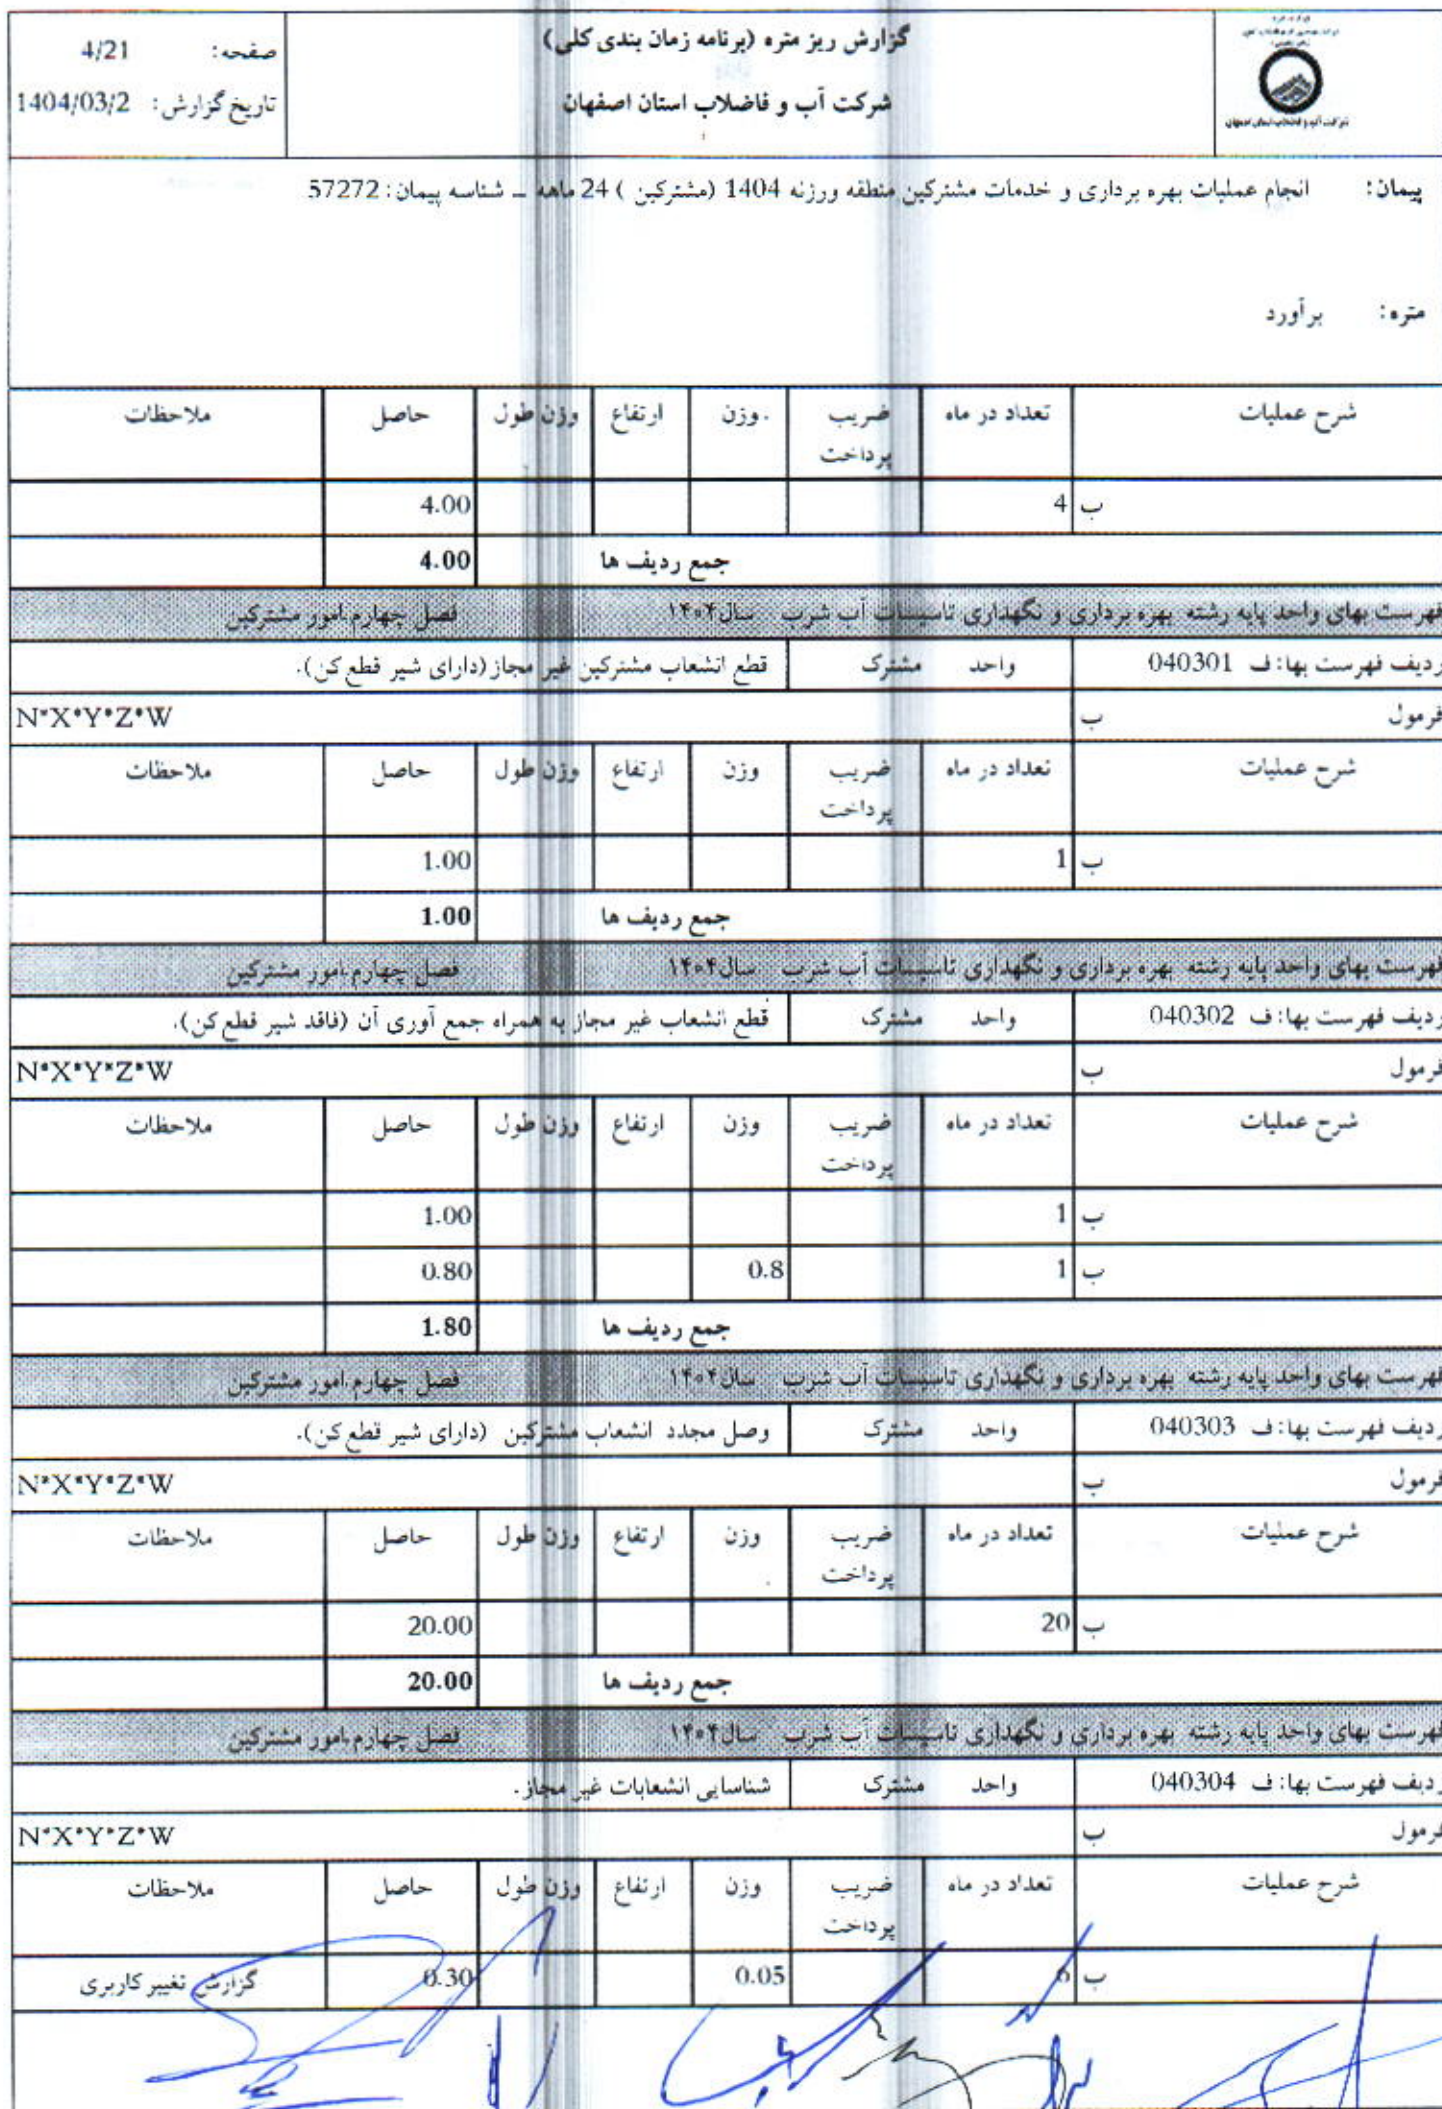 گزارش ریز متره (برنامه زمان بندی کلی)
شرکت آب و فاضلاب استان اصفهان
صفحه: 4/21
تاریخ گزارش: 1404/03/2
شرکت آب و فاضلاب استان اصفهان
پیمان: انجام عملیات بهره برداری و خدمات مشترکین منطقه ورزنه 1404 (مشترکین ) 24 ماهه _ شناسه پیمان: 57272
متره: برآورد
شرح عملیات تعداد در ماه ضریب پرداخت وزن ارتفاع وزن طول حاصل ملاحظات
ب 4 4.00
جمع ردیف ها 4.00
فهرست بهای واحد پایه رشته بهره برداری و نگهداری تاسیسات آب شرب سال۱۴۰۴ فصل چهارم.امور مشترکین
ردیف فهرست بها: ف 040301 واحد مشترک قطع انشعاب مشترکین غیر مجاز(دارای شیر قطع کن).
فرمول ب N*X*Y*Z*W
شرح عملیات تعداد در ماه ضریب پرداخت وزن ارتفاع وزن طول حاصل ملاحظات
ب 1 1.00
جمع ردیف ها 1.00
فهرست بهای واحد پایه رشته بهره برداری و نگهداری تاسیسات آب شرب سال۱۴۰۴ فصل چهارم.امور مشترکین
ردیف فهرست بها: ف 040302 واحد مشترک قطع انشعاب غیر مجاز به همراه جمع آوری آن (فاقد شیر قطع کن).
فرمول ب N*X*Y*Z*W
شرح عملیات تعداد در ماه ضریب پرداخت وزن ارتفاع وزن طول حاصل ملاحظات
ب 1 1.00
ب 1 0.8 0.80
جمع ردیف ها 1.80
فهرست بهای واحد پایه رشته بهره برداری و نگهداری تاسیسات آب شرب سال۱۴۰۴ فصل چهارم.امور مشترکین
ردیف فهرست بها: ف 040303 واحد مشترک وصل مجدد انشعاب مشترکین (دارای شیر قطع کن).
فرمول ب N*X*Y*Z*W
شرح عملیات تعداد در ماه ضریب پرداخت وزن ارتفاع وزن طول حاصل ملاحظات
ب 20 20.00
جمع ردیف ها 20.00
فهرست بهای واحد پایه رشته بهره برداری و نگهداری تاسیسات آب شرب سال۱۴۰۴ فصل چهارم.امور مشترکین
ردیف فهرست بها: ف 040304 واحد مشترک شناسایی انشعابات غیر مجاز.
فرمول ب N*X*Y*Z*W
شرح عملیات تعداد در ماه ضریب پرداخت وزن ارتفاع وزن طول حاصل ملاحظات
ب 6 0.05 0.30 گزارش تغییر کاربری